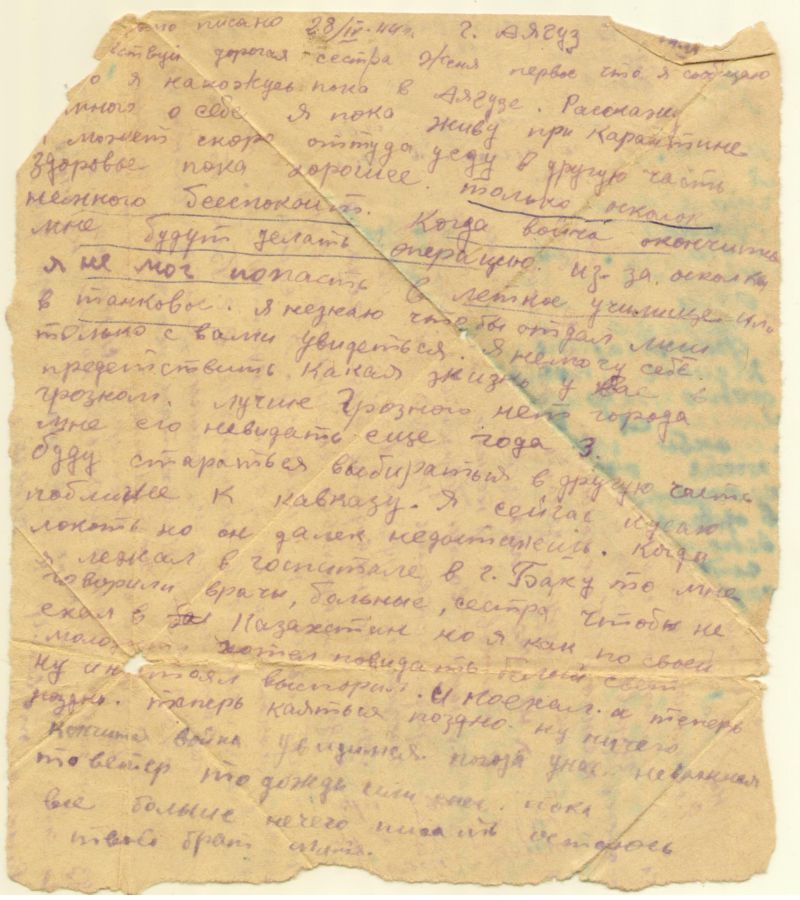 писано 28/IV-44г. г. Аягуз
дорогая сестра Женя первое что я сообщаю
я нахожусь пока в Аягузе. Расскажу
много о себе я пока живу при Карантине
может скоро оттуда уеду в другую часть
здоровье пока хорошее. только осколок
немного бееспокоит. Когда война окончится
мне будут делать операцию. из. за. осколка
я не мог попасть в летное училище или
в танковое. я незнаю что бы отдал лиш
только с вами увидеться. Я немогу себе.
предетствить какая жизнь у вас в
грозном. лучше Грозного нет города
мне его невидать еще года 3.
буду стараться выбираться в другую часть
поближе к кавказу. Я сейчас кусаю
локоть но он далек недостанешь. Когда
я лежал в госпитале в г. Баку то мне
говорили врачы, больные, сестра чтобы не
ехал в Казахстан но я как по своей
хотел повидать белый свет
ну и настоял выспорил. И поехал. а теперь
поздно. теперь каяться поздно. ну ничего
кончится война увидимся. погода у нас неважная
то ветер то дождь или снег. пока
все больше нечего писать остаюсь
твой брат